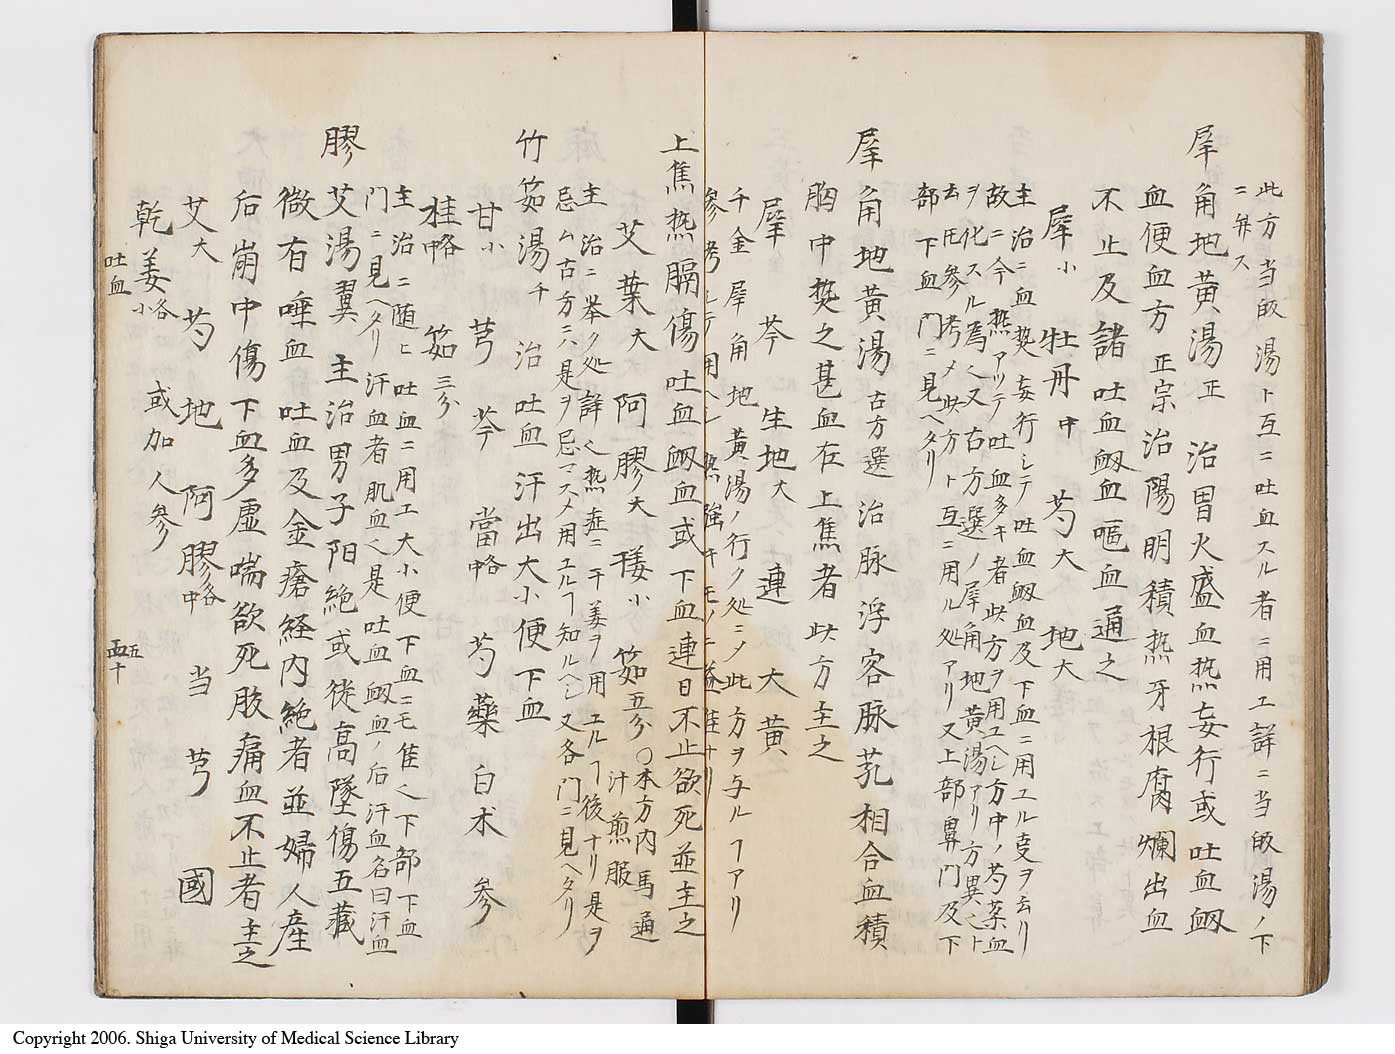 此方当皈湯ト互ニ吐血スル者ニ用工詳ニ当皈湯ノ下
ニ弁ス
犀角地黄湯 正 治胃火盛血热妄行或吐血衂
血便血方 正宗 治陽明積热牙根腐爛出血
不止及諸吐血衂血嘔血通之
犀小 牡丹中 芍大 地大
主治ニ血热妄行シテ吐血衂血及下血ニ用ユル支ヲ云リ
故ニ今热アリテ吐血多キ者此方ヲ用ユヘシ方中ノ芍薬血
ヲ化スル為也又古方選ノ犀角地黄湯アリ方異也ト
云圧参考メ此方ト互ニ用ル処アリ又上部鼻門及下
部下血門ニ見ヘタリ
犀角地黄湯 古方選 治脉浮客脉芤相合血積
胸中热之甚血在上焦者此方主之
犀 芩 生地大 連 大黄
千金犀角地黄湯ノ行ク処ニメ此方ヲ与ルヿアリ
参考シテ用ヘシ热強キモノニ遂佳ナリ
上焦热膈傷吐血衂血或下血連日不止欲死並主之
艾葉大 阿膠大 薐小 筎五分 〇本方内馬通
汁煎服
主治ニ挙ク処詳也热症ニ干姜ヲ用ユルヿ後ナリ是ヲ
忌ム古方ニハ是ヲ忌マスメ用ユルヿ知ルヘシ又各門ニ見ヘタリ
竹筎湯 千 治吐血汗出大小便下血
甘小 芎 芩 當中略 芍藥 白术 参
桂中略 筎三分
主治ニ随ヒ吐血ニ用工大小便下血ニモ佳也下部下血
門ニ見ヘタリ汗血者肌血也是吐血衂血ノ后汗血名曰汗血
膠艾湯 翼 主治男子阳絶或従高墜傷五藏
微有唾血吐血及金瘡経内絶者並婦人産
后崩中傷下血多虚喘欲死腹痛血不止者主之
艾大 芍 地 阿膠各中 当 芎 國
乾姜各小 或加人参
吐血
五十